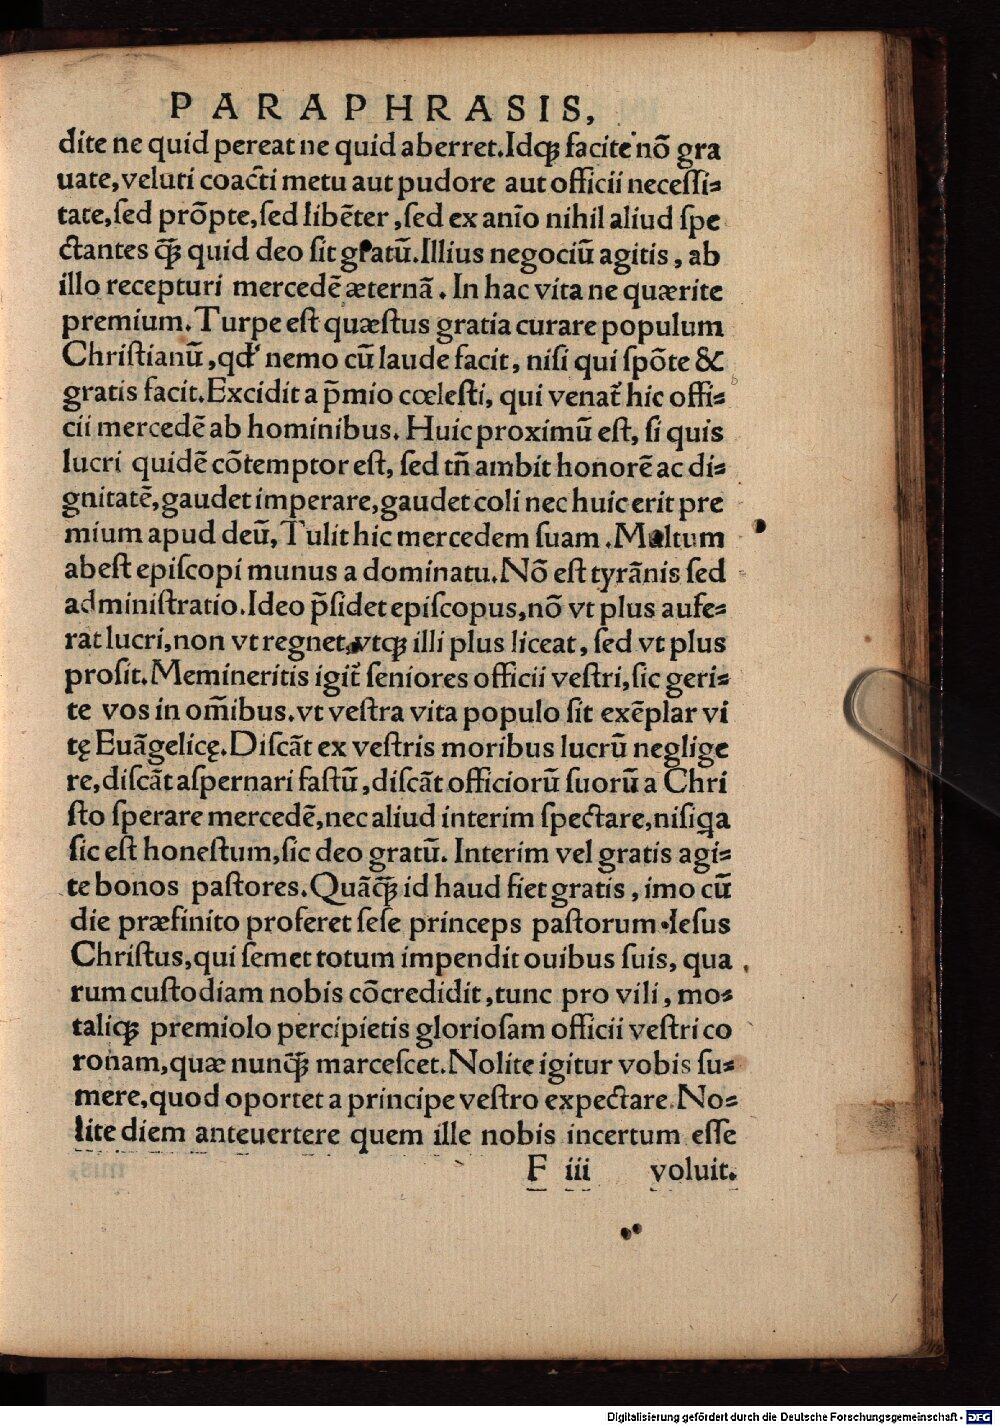 PARAPHRASIS,
dite ne quid pereat ne quid aberret. Idqꝫ facite nõ gra
uate, veluti coacti metu aut pudore aut officii necessi⸗
tate, sed prõpte, sed libẽter, sed ex anĩo nihil aliud spe
ctantes q̃ꝫ quid deo sit gratũ. Illius negociũ agitis, ab
illo recepturi mercedẽ æternã. In hac vita ne quærite
premium. Turpe est quæstus gratia curare populum
Christianũ, qd' nemo cũ laude facit, nisi qui spõte &
gratis facit. Excidit a p̃mio cœlesti, qui venat᷑ hic offi⸗
cii mercedẽ ab hominibus. Huic proximũ est, si quis
lucri quidẽ cõtemptor est, sed tñ ambit honorẽ ac di⸗
gnitatẽ, gaudet imperare, gaudet coli nec huic erit pre
mium apud deũ, Tulit hic mercedem suam. Multum
abest episcopi munus a dominatu. Nõ est tyrãnis sed
administratio. Ideo p̃sidet episcopus, nõ vt plus aufe⸗
rat lucri, non vt regnet, vtqꝫ illi plus liceat, sed vt plus
prosit. Memineritis igit᷑ seniores officii vestri, sic geri⸗
te vos in om̃ibus. vt vestra vita populo sit exẽplar vi
tę Euãgelicę. Discãt ex vestris moribus lucrũ neglige
re, discãt aspernari fastũ, discãt officiorũ suorũ a Chri
sto sperare mercedẽ, nec aliud interim spectare, nisi qa
sic est honestum, sic deo gratũ. Interim vel gratis agi⸗
te bonos pastores. Quãq̃ꝫ id haud fiet gratis, imo cũ
die præfinito proferet sese princeps pastorum Iesus
Christus, qui semet totum impendit ouibus suis, qua
rum custodiam nobis cõcredidit, tunc pro vili, mo⸗
taliqꝫ premiolo percipietis gloriosam officii vestri co
ronam, quæ nunq̃ꝫ marcescet. Nolite igitur vobis su⸗
mere, quod oportet a principe vestro expectare. No⸗
lite diem anteuertere quem ille nobis incertum esse
F iii voluit.
Digitalisierung gefördert durch die Deutsche Forschungsgemeinschaft - DFG